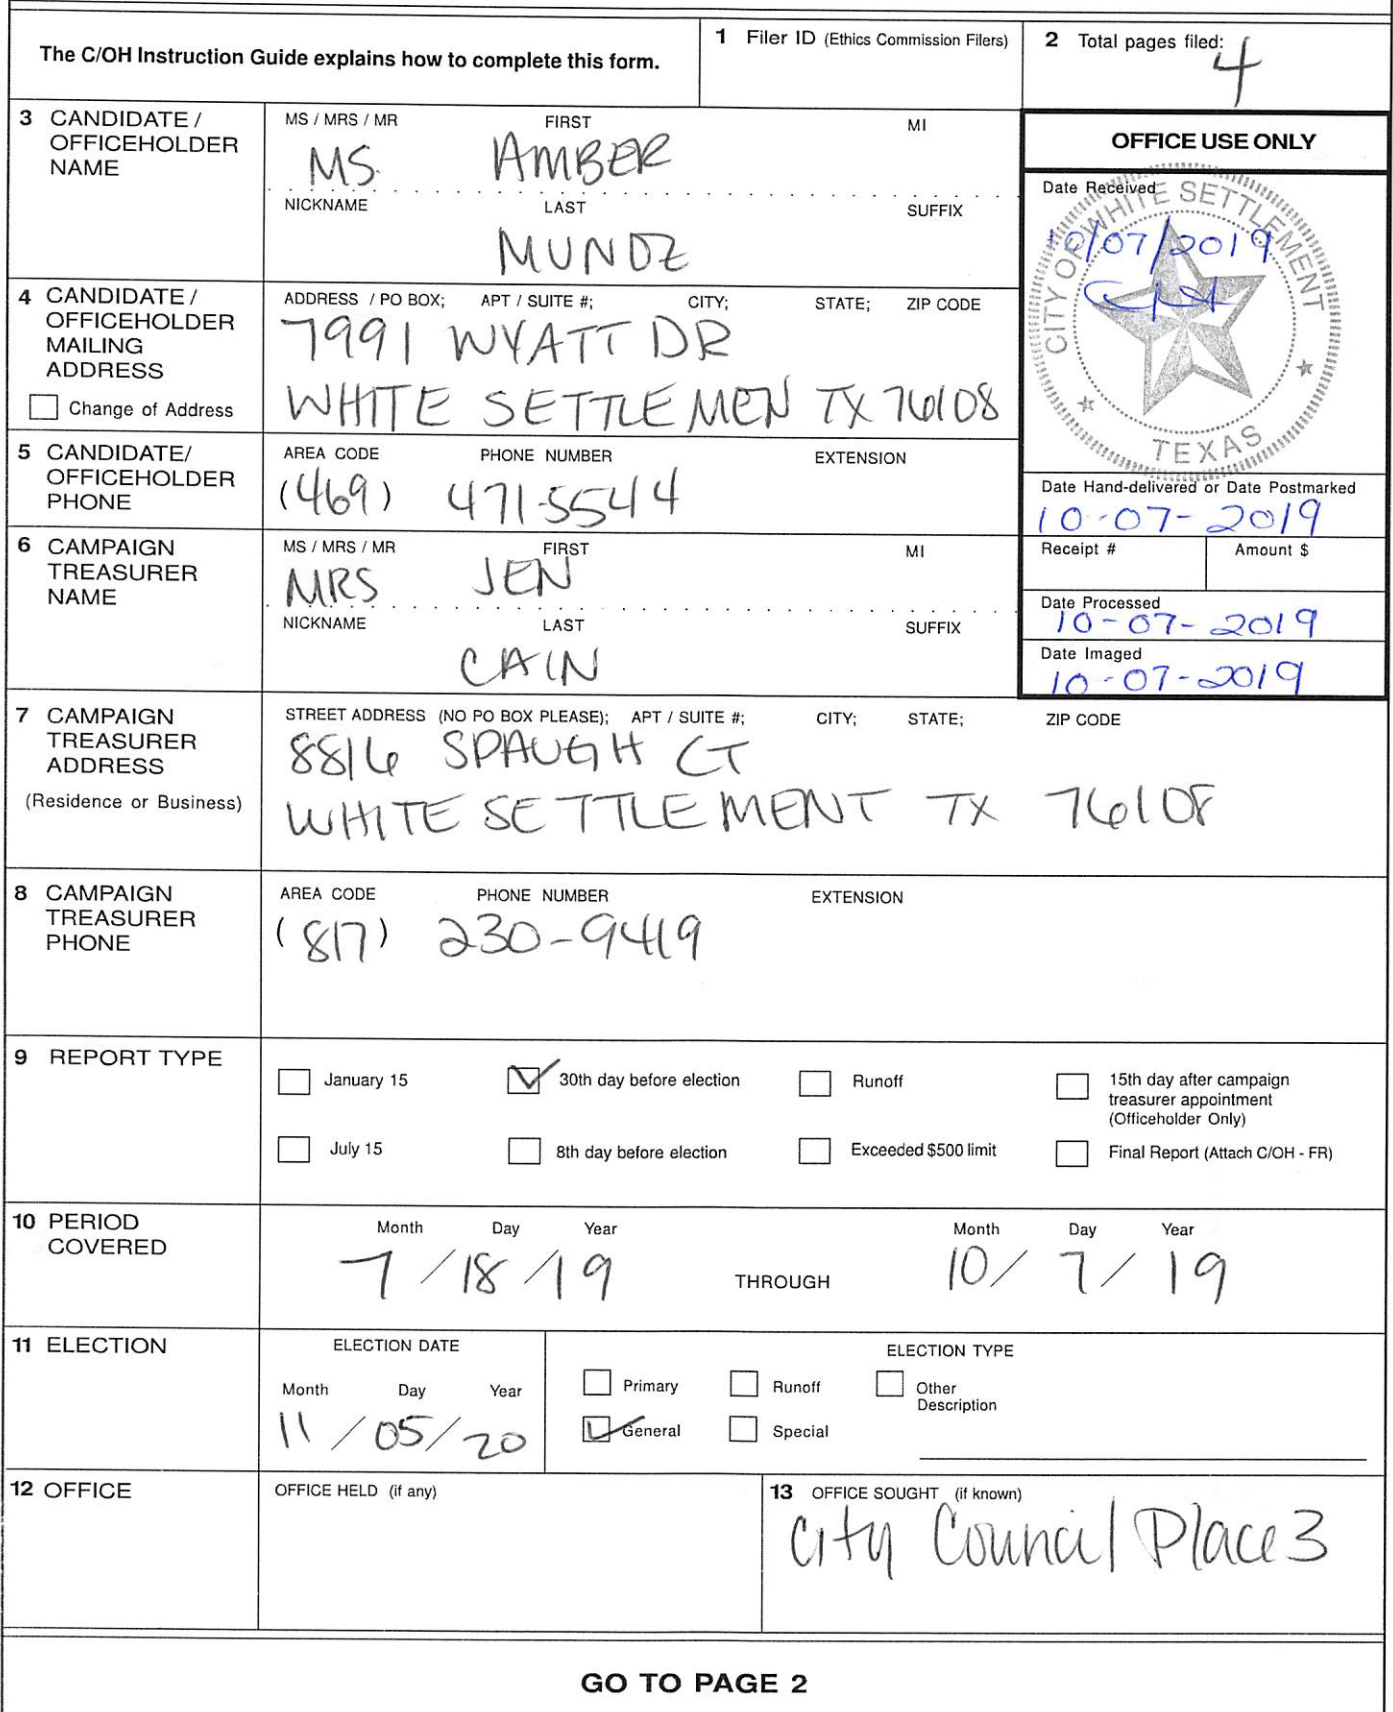 The C/OH Instruction Guide explains how to complete this form.
1 Filer ID (Ethics Commission Filers)
2 Total pages filed: 4
3 CANDIDATE / OFFICEHOLDER NAME
MS / MRS / MR FIRST MI
MS. AMBER
NICKNAME LAST SUFFIX
MUNOZ
OFFICE USE ONLY
Date Received
CITY OF WHITE SETTLEMENT
TEXAS
10/07/2019
4 CANDIDATE / OFFICEHOLDER MAILING ADDRESS
Change of Address
ADDRESS / PO BOX; APT / SUITE #; CITY; STATE; ZIP CODE
7991 WYATT DR
WHITE SETTLEMEN TX 76108
5 CANDIDATE/ OFFICEHOLDER PHONE
AREA CODE PHONE NUMBER EXTENSION
(469) 471-5544
Date Hand-delivered or Date Postmarked
10-07-2019
Receipt # Amount $
Date Processed
10-07-2019
Date Imaged
10-07-2019
6 CAMPAIGN TREASURER NAME
MS / MRS / MR FIRST MI
MRS JEN
NICKNAME LAST SUFFIX
CAIN
7 CAMPAIGN TREASURER ADDRESS
(Residence or Business)
STREET ADDRESS (NO PO BOX PLEASE); APT / SUITE #; CITY; STATE; ZIP CODE
8816 SPAUGH CT
WHITE SETTLEMENT TX 76108
8 CAMPAIGN TREASURER PHONE
AREA CODE PHONE NUMBER EXTENSION
(817) 230-9419
9 REPORT TYPE
January 15 30th day before election Runoff 15th day after campaign treasurer appointment (Officeholder Only)
July 15 8th day before election Exceeded $500 limit Final Report (Attach C/OH - FR)
10 PERIOD COVERED
Month Day Year Month Day Year
7/18/19 THROUGH 10/7/19
11 ELECTION
ELECTION DATE
Month Day Year
11/05/20
ELECTION TYPE
Primary Runoff Other Description
General Special
12 OFFICE
OFFICE HELD (if any)
13 OFFICE SOUGHT (if known)
City Council Place 3
GO TO PAGE 2